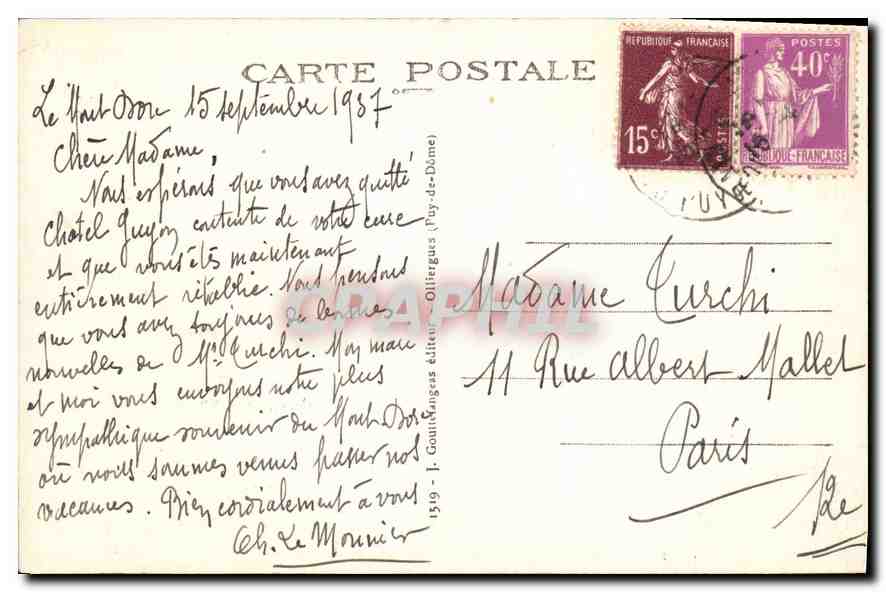 CARTE POSTALE
Le Mont Dore 15 septembre 1937
Chère Madame,
Nous espérons que vous avez quitté
Chatel Guyon contente de votre cure
et que vous êtes maintenant
entièrement rétablie. Nous pensons
que vous avez toujours de bonnes
nouvelles de Mr Turchi. Mon mari
et moi vous envoyons notre plus
sympathique souvenir du Mont Dore
où nous sommes venus passer nos
vacances. Bien cordialement à vous
Ch. Le Monnier
1519 - J. Gouttefangeas éditeur - Olliergues (Puy-de-Dôme)
REPUBLIQUE FRANÇAISE
15c
POSTES
POSTES
40c
REPUBLIQUE-FRANÇAISE
Madame Turchi
11 Rue Albert Mallet
Paris
12e
CPAPHIL